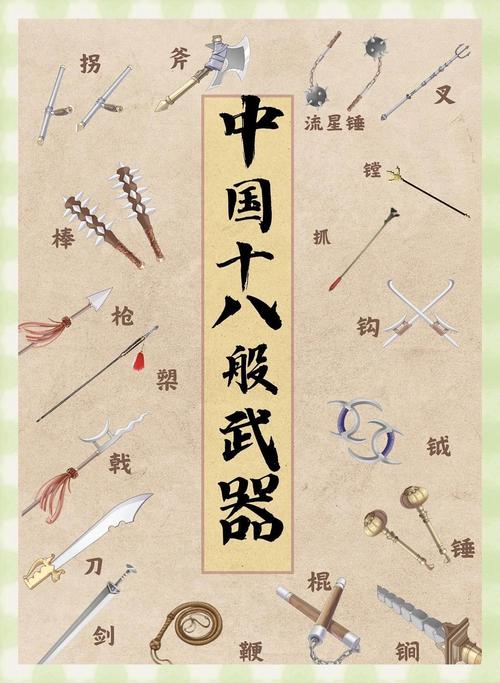 中国十八般武器
拐
斧
流星锤
叉
镋
棒
抓
枪
钩
槊
戟
钺
刀
锤
剑
鞭
棍
锏